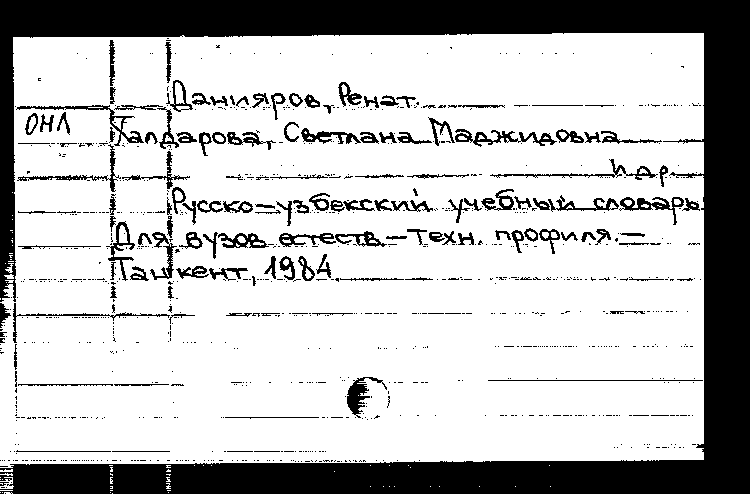 Данияров, Ренат.
ОНЛ
Халдарова, Светлана Маджидовна
и др.
Русско-узбекский учебный словарь
Для вузов естеств.-техн. профиля.-
Ташкент, 1984.